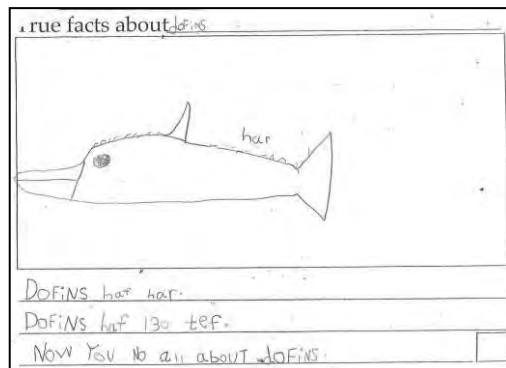 rue facts about dofins
har
DOFiNS haf har.
DOFiNS haf 130 tef.
NOW YOU NO all about dOFiNS.